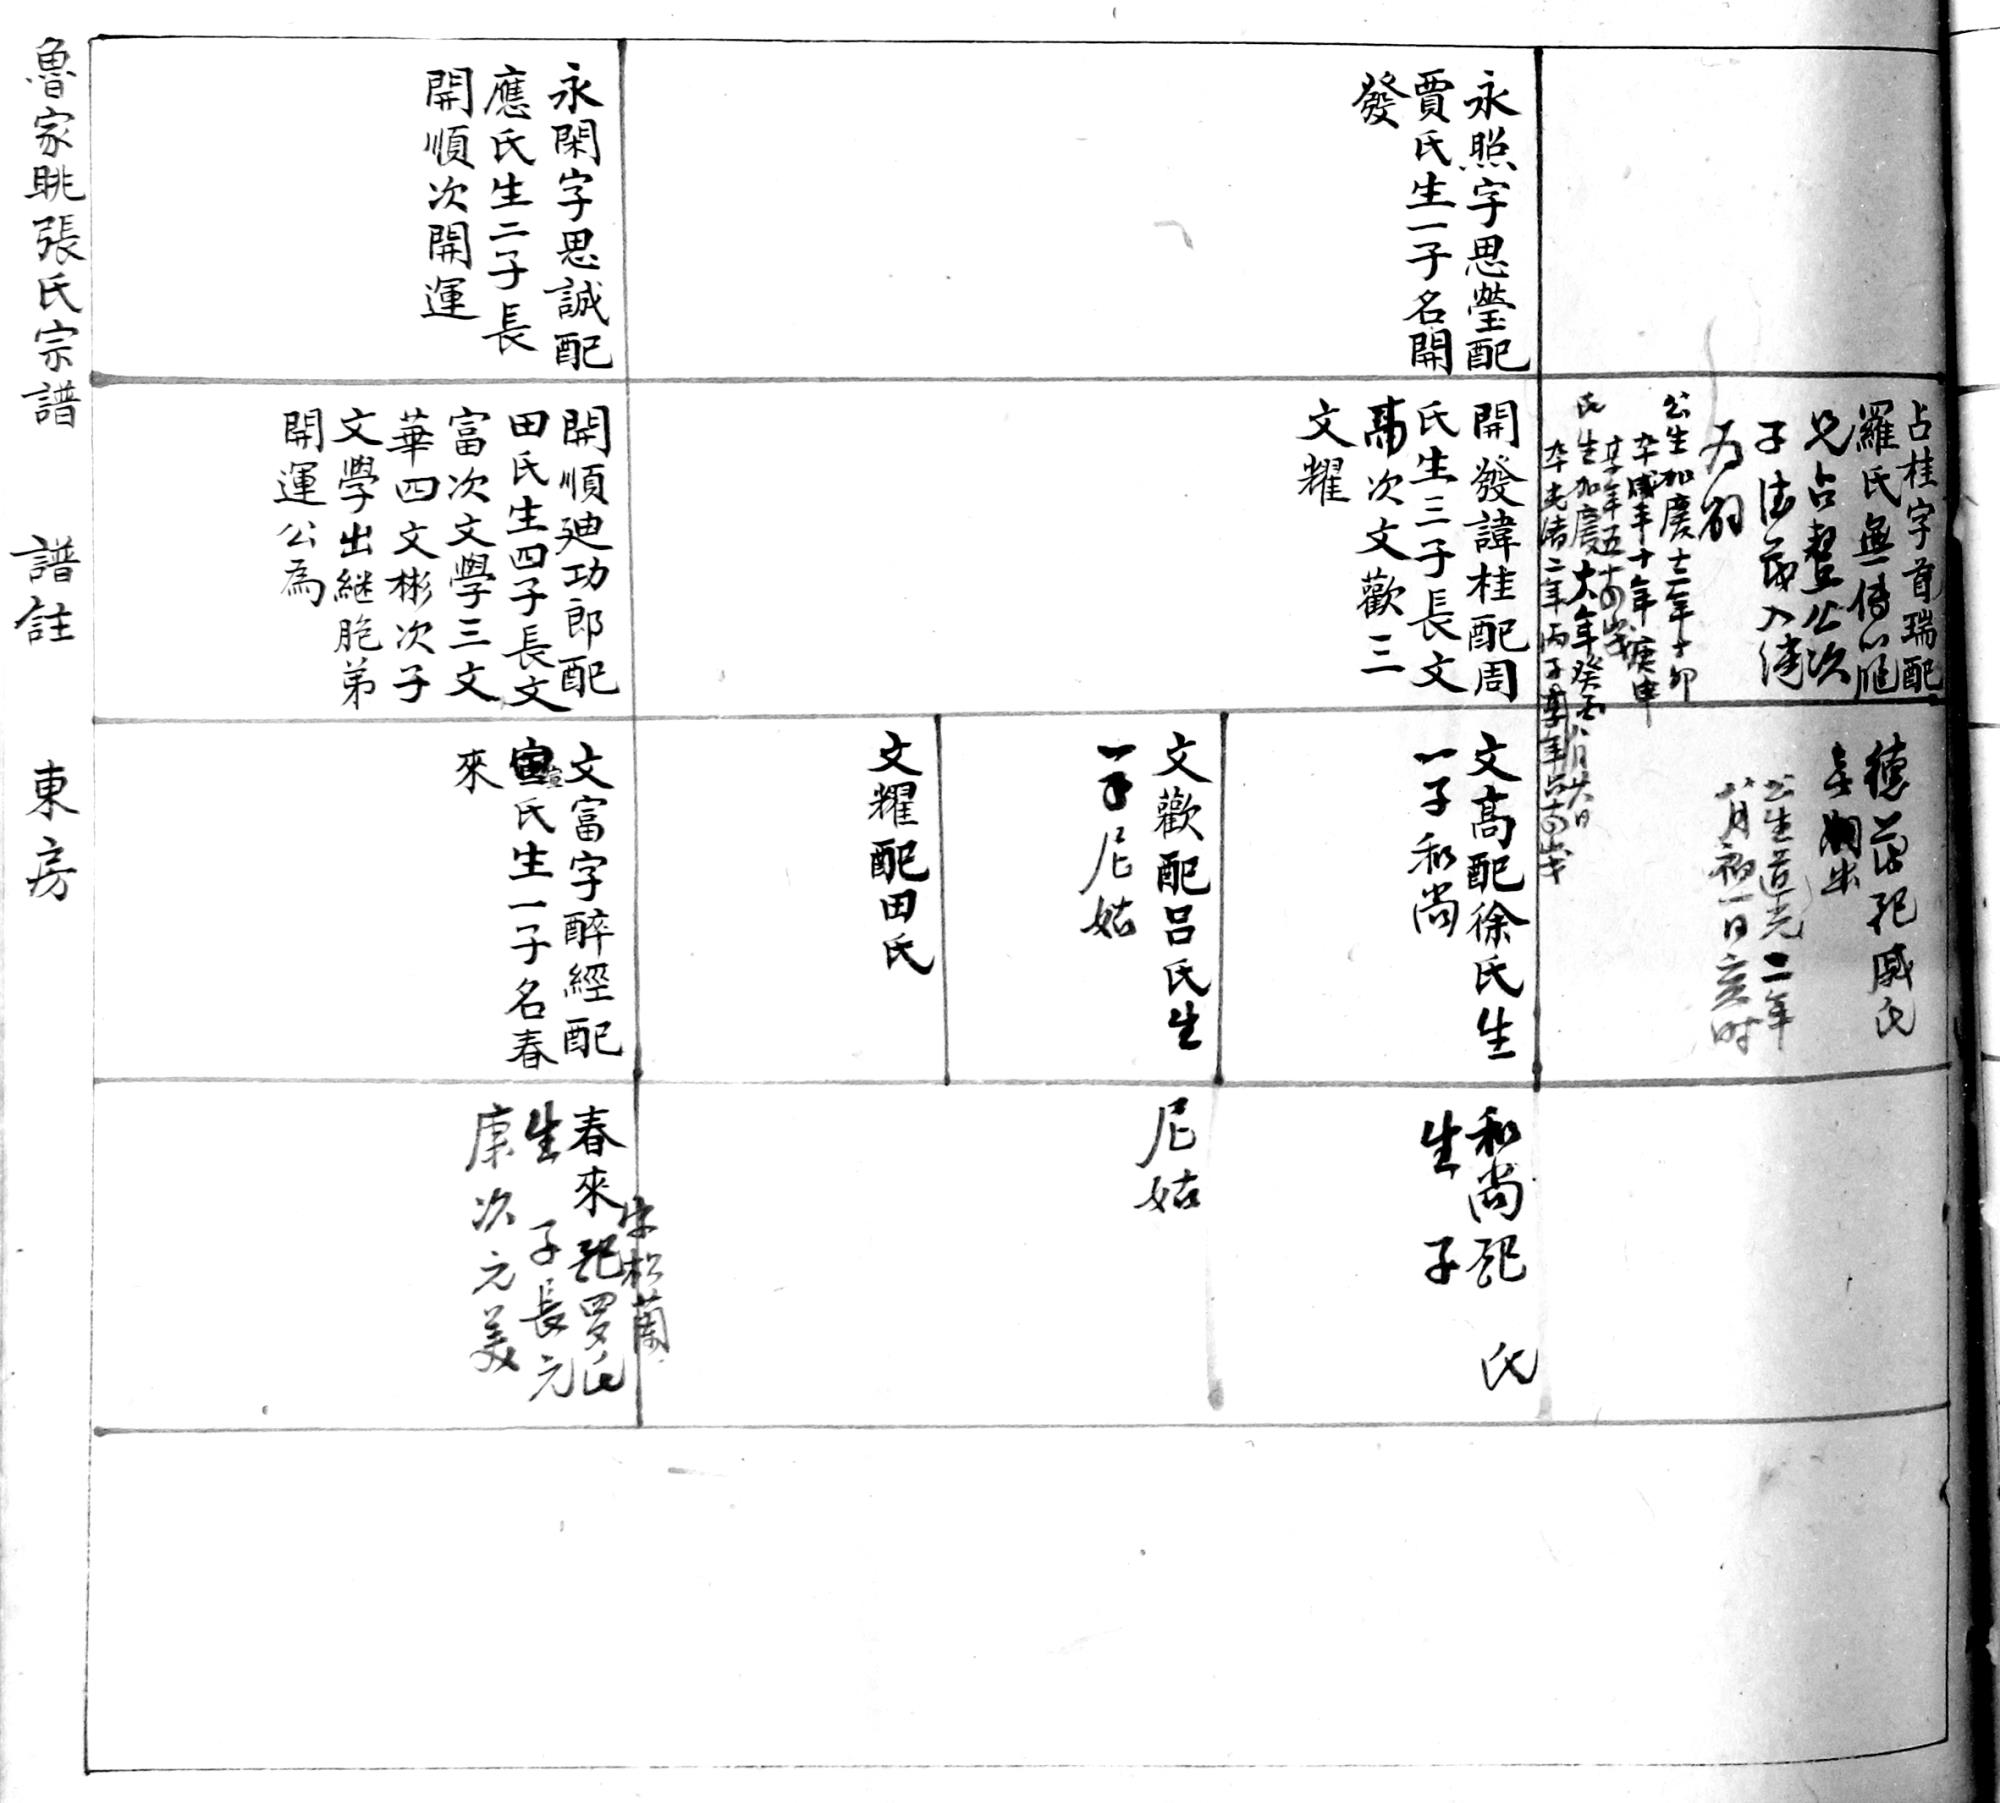 永照字思瑩配
賈氏生一子名開
發
永閑字思誠配
應氏生二子長
開順次開運
占桂字首瑞配
羅氏無傳以胞
兄占鰲公次
子德茂入繼
為嗣
公生加慶十二年丁卯
卒咸丰十年庚申
享年五十四歲
氏生加慶十八年癸酉八月廿六日
卒光緒二年丙子享年六十四歲
開發諱桂配周
氏生三子長文
高次文歡三
文耀
開順廸功郎配
田氏生四子長文
富次文學三文
華四文彬次子
文學出継胞弟
開運公為
德茂配戚氏
公生道光二年
八月初一日亥时
文高配徐氏生
一子和尚
文歡配呂氏生
一子尼姑
文耀配田氏
文富字醉經配
宣氏生一子名春
來
和尚配 氏
生 子
尼姑
宋松蘭
春來配罗氏
生 子長元
康次元美
魯家眺張氏宗譜 譜註 東房